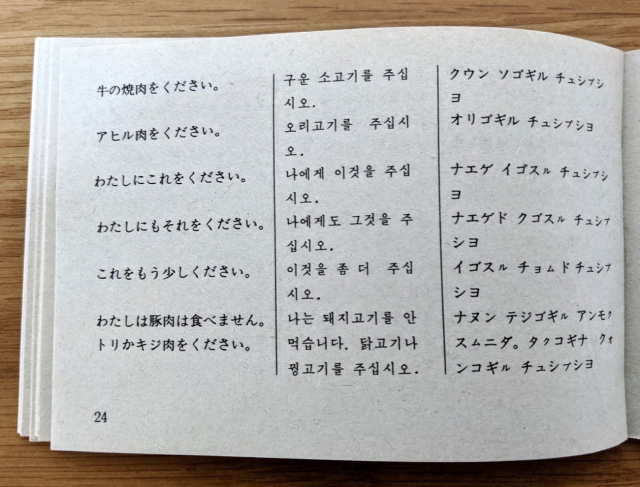 牛の焼肉をください。
アヒル肉をください。
わたしにこれをください。
わたしにもそれをください。
これをもう少しください。
わたしは豚肉は食べません。
トリかキジ肉をください。
구운 소고기를 주십
시오.
오리고기를 주십시
오.
나에게 이것을 주십
시오.
나에게도 그것을 주
십시오.
이것을 좀 더 주십
시오.
나는 돼지고기를 안
먹습니다. 닭고기나
꿩고기를 주십시오.
クウン ソゴギル チュシㇷ゚シ
ヨ
オリゴギル チュシㇷ゚ショ
ナエゲ イゴスル チュシㇷ゚シ
ヨ
ナエゲド クゴスル チュシㇷ゚
ショ
イゴスル チョムド チュシㇷ゚
ショ
ナヌン テジゴギル アンモク
スムニダ。タクコギナ クォ
ンコギル チュシㇷ゚ショ
24